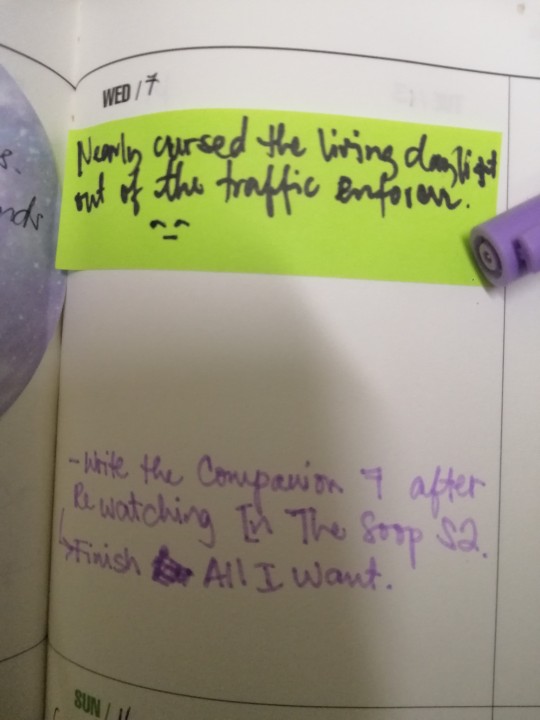 s.
nds
WED / 7
Nearly cursed the living daylight
out of the traffic enforcer.
- Write the Companion 7 after
Rewatching In The Soop S2.
→ Finish All I Want.
SUN / 11